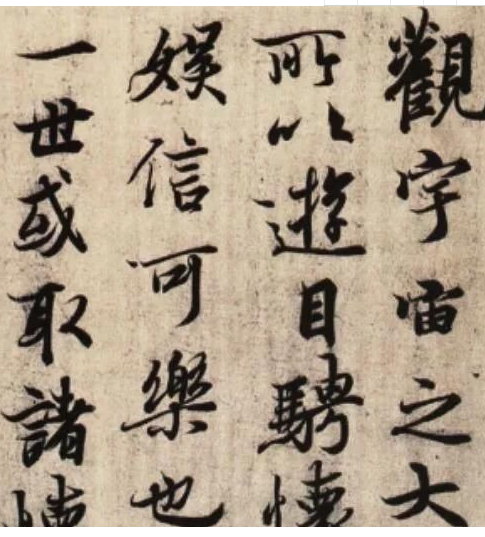 觀宇宙之大
所以遊目騁懷
娛信可樂也
一世或取諸懷